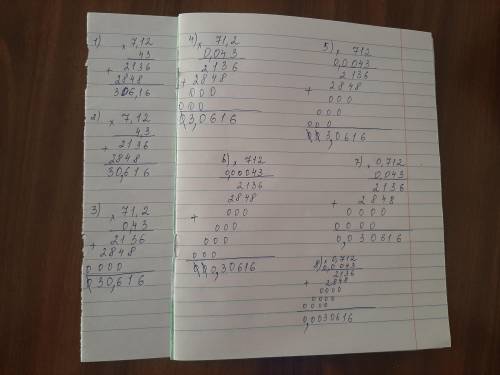 1) × 7,12
43
+ 2136
2848
306,16
2) × 7,12
4,3
+ 2136
2848
30,616
3) × 71,2
0,43
+ 2136
2848
0000
030,616
4) × 71,2
0,043
2136
+ 2848
000
000
03,0616
5) × 712
0,0043
2136
+ 2848
000
000
000
003,0616
6) × 712
0,00043
2136
2848
+ 000
000
000
000
000,30616
7) × 0,712
0,043
2136
+ 2848
0000
0000
0,030616
8) × 0,712
0,0043
2136
+ 2848
0000
0000
0000
0,0030616